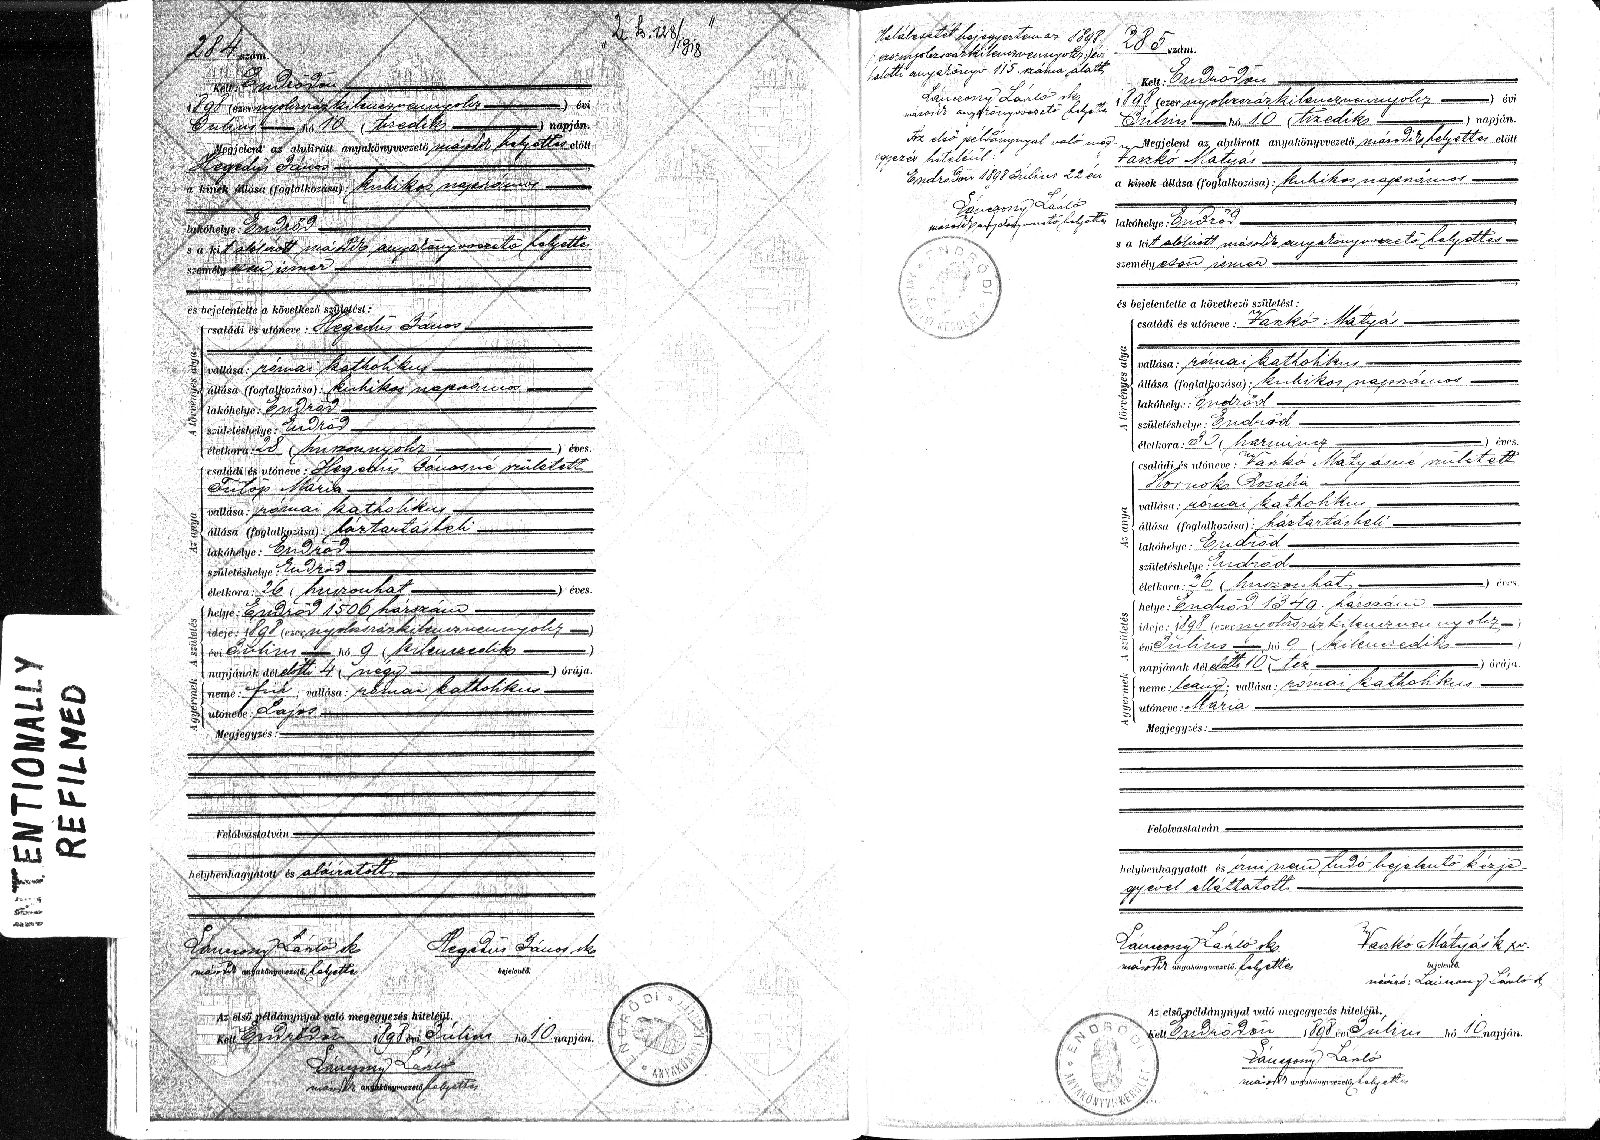 INTENTIONALLY
REFILMED
284 szám.
Kelt Endrődön
1898 (ezer nyolczszázkilenczvennyolcz) évi
Július hó 10 (tizedik) napján.
Megjelent az alulirott anyakönyvvezető második helyettes előtt
Hegedüs János
a kinek állása (foglalkozása): kubikos napszámos
lakóhelye: Endrőd
s a kit alulirott második anyakönyvvezető helyettes
személyesen ismer
és bejelentette a következő születést:
A törvényes atyja
családi és utóneve: Hegedüs János
vallása: római katholikus
állása (foglalkozása): kubikos napszámos
lakóhelye: Endrőd
születéshelye: Endrőd
életkora: 28 (huszonnyolcz) éves.
Az anya
családi és utóneve: Hegedüs Jánosné született
Fülöp Mária
vallása: római katholikus
állása (foglalkozása): háztartásbeli
lakóhelye: Endrőd
születéshelye: Endrőd
életkora: 26 (huszonhat) éves.
A születés
helye: Endrőd 1506 házszám
ideje: 1898 (ezer nyolczszázkilenczvennyolcz)
évi Július hó 9 (kilenczedik)
napjának délelőtti 4 (négy) órája.
A gyermek
neme: fiú; vallása: római katholikus
utóneve: Lajos
Megjegyzés:
Felolvastatván
helybenhagyatott és aláiratott
Lánczony László sk
második anyakönyvvezető helyettes
Hegedüs János sk
bejelentő.
Az első példánynyal való megegyezés hiteléül.
Kelt Endrődön 1898 évi Július hó 10 napján.
Lánczony László
második anyakönyvvezető helyettes
Halálesetét bejegyeztem az 1898
ezernyolczszázkilenczvennyolcz évi
halotti anyakönyv 115 száma alatt
Lánczony László sk
második anyakönyvvezető helyettes
Az első példánynyal való meg
egyezés hiteléül:
Endrődön 1898 Július 22 én
Lánczony László
második anyakönyvvezető helyettes
ENDRŐDI
285 szám.
Kelt: Endrődön
1898 (ezer nyolczszázkilenczvennyolcz) évi
Július hó 10 (tizedik) napján.
Megjelent az alulirott anyakönyvvezető második helyettes előtt
Vaskó Mátyás
a kinek állása (foglalkozása): kubikos napszámos
lakóhelye: Endrőd
s a kit alulirott második anyakönyvvezető helyettes
személyesen ismer
és bejelentette a következő születést:
A törvényes atyja
családi és utóneve: Vaskó Mátyás
vallása: római katholikus
állása (foglalkozása): kubikos napszámos
lakóhelye: Endrőd
születéshelye: Endrőd
életkora: 30 (harmincz) éves.
Az anya
családi és utóneve: Vaskó Mátyásné született
Hornok Rozália
vallása: római katholikus
állása (foglalkozása): háztartásbeli
lakóhelye: Endrőd
születéshelye: Endrőd
életkora: 26 (huszonhat) éves.
A születés
helye: Endrőd 1340 házszám
ideje: 1898 (ezer nyolczszázkilenczvennyolcz)
évi Július hó 9 (kilenczedik)
napjának délelőtti 10 (tíz) órája.
A gyermek
neme: leány; vallása: római katholikus
utóneve: Mária
Megjegyzés:
Felolvastatván
helybenhagyatott és írni nem tudó bejelentő kézje
gyével elláttatott
Lánczony László sk
második anyakönyvvezető helyettes
Vaskó Mátyás k xv.
bejelentő.
névíró: Lánczony László sk
Az első példánynyal való megegyezés hiteléül.
Kelt Endrődön 1898 évi Július hó 10 napján.
Lánczony László
második anyakönyvvezető helyettes
ENDRŐDI
ANYAKÖNYVI KERÜLET